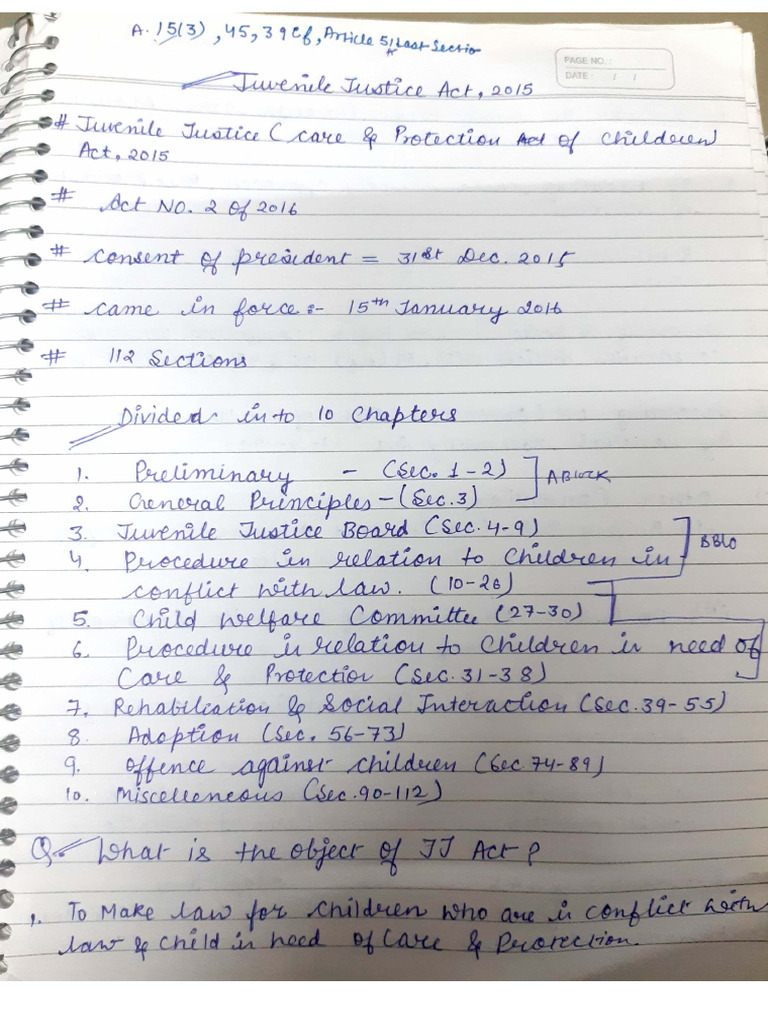 A. 15(3), 45, 39 Cf, Article 51 Last Sectio
A
PAGE NO. :
DATE : / /
Juvenile Justice Act, 2015
# Juvenile Justice ( care & Protection Act of children
Act, 2015
# Act NO. 2 of 2016
# consent of president = 31st Dec. 2015
# came in force :- 15th January 2016
# 112 Sections
Divided in to 10 Chapters
1. Preliminary - (Sec. 1-2) A BLOCK
2. General Principles - (Sec.3)
3. Juvenile Justice Board (Sec. 4-9)
4. Procedure in relation to Children in BBLO
conflict with law. (10-26)
5. Child Welfare Committee (27-30)
6. Procedure in relation to Children in need of
Care & Protection (Sec. 31-38)
7. Rehabilication & Social Interaction (Sec. 39-55)
8. Adoption (Sec. 56-73)
9. offence against children (Sec. 74-89)
10. Miscelleneous (Sec. 90-112)
Q. What is the object of JJ Act ?
1. To Make law for children who are in conflict with
law & Child in need of Care & Protection.